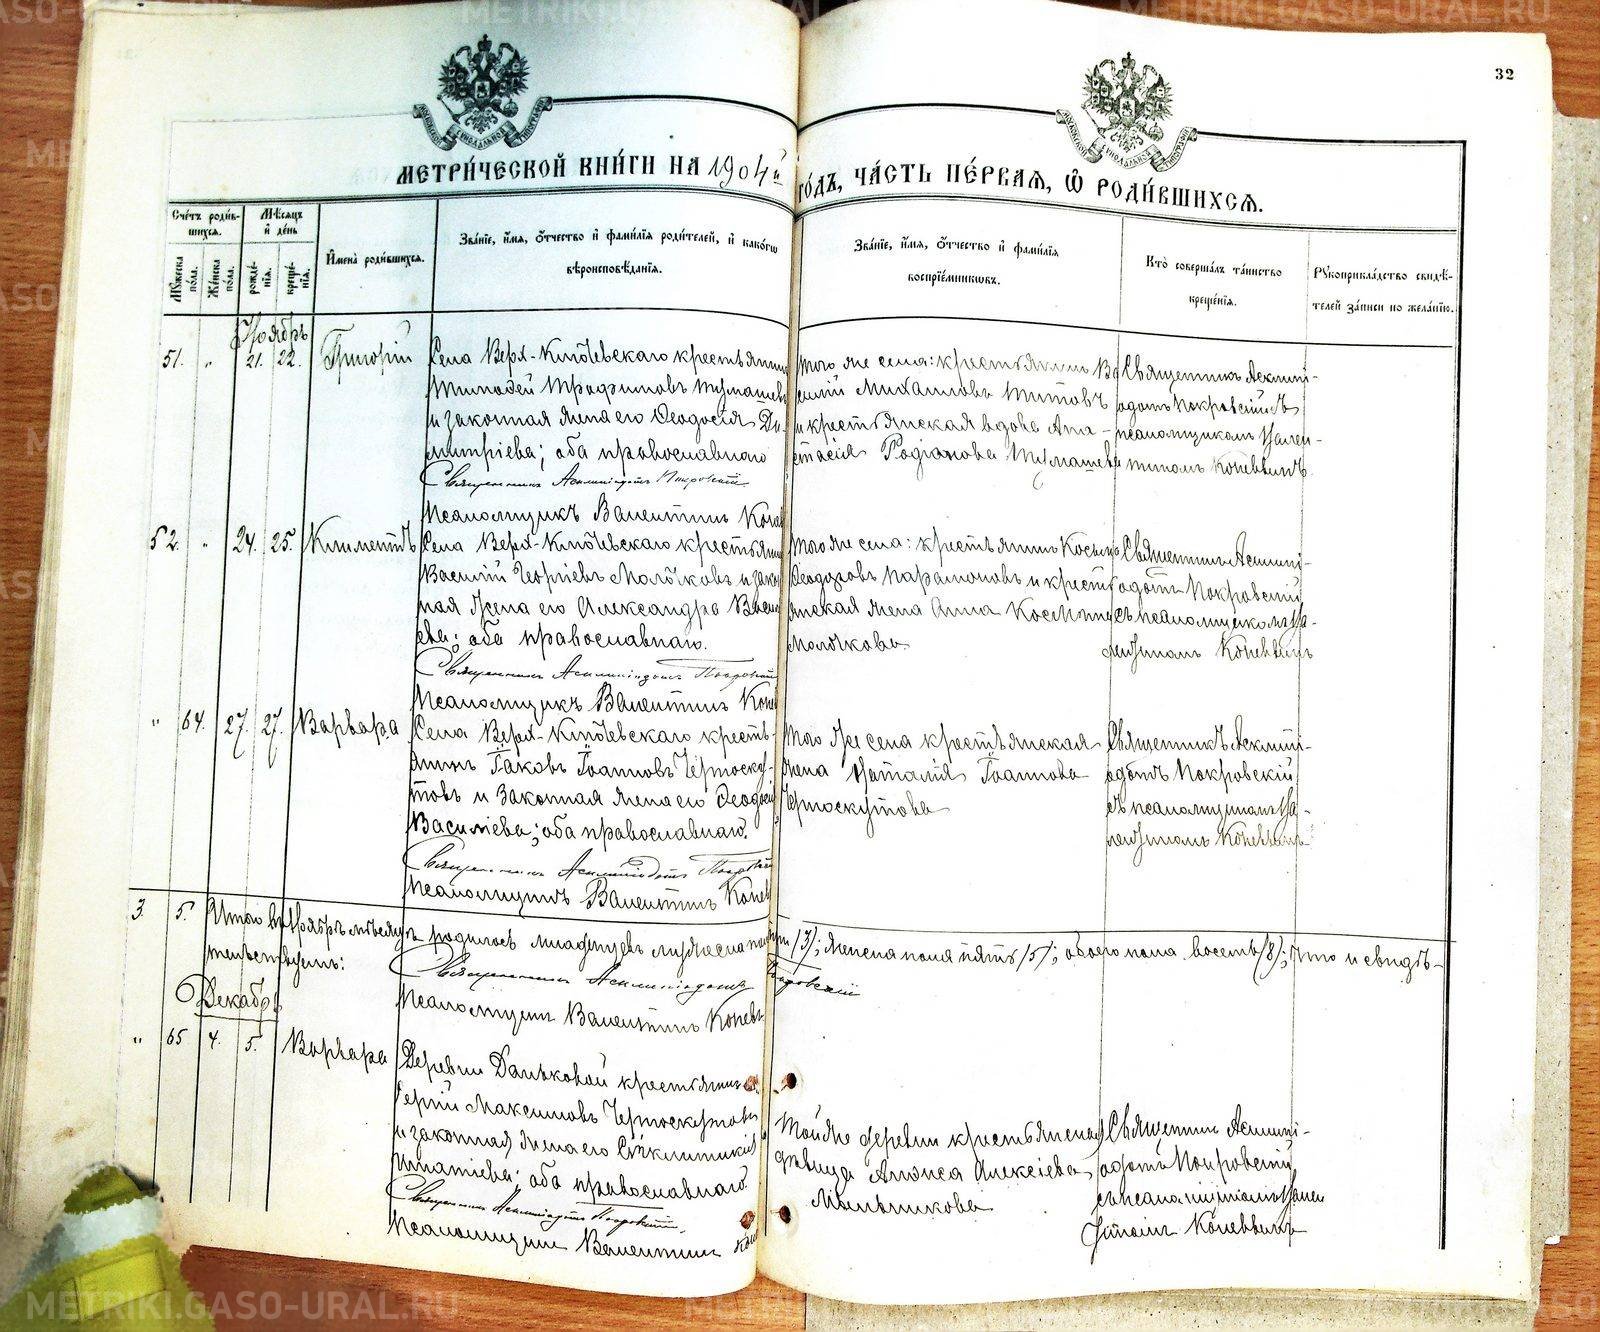 32
МЕТРИ́ЧЕСКОЙ КНИ́ГИ НА 1904й ГО́ДЪ, ЧА́СТЬ ПЕ́РВАЯ, Ѡ РОДИ́ВШИХСЯ.
Сче́тъ роди́вшихся.
Му́жеска по́ла.
Же́нска по́ла.
Мѣ́сяцъ и де́нь
рожде́нія.
креще́нія.
И҆мена̀ роди́вшихся.
Зва́ніе, и҆́мя, ѻ҆́тчество и҆ фами́лія роди́телей, и҆ како́гѡ
вѣроисповѣ́данія.
Зва́ніе, и҆́мя, ѻ҆́тчество и҆ фами́лія
воспріе́мниковъ.
Кто̀ соверша́лъ та́инство
креще́нія.
Рукоприкла́дство свидѣ́-
телей за́писи по жела́нію.
Ноябрь
51. " 21. 22. Григорій
Села Верх-Ключевскаго крестьянин
Тимофей Трофимовъ Тумашев
и законная жена его Ѳеодосія Ди-
митріева; оба православнаго
Священникъ Асклипіодотъ Покровскій
Псаломщикъ Валентинъ Конев
того же села: крестьянинъ Ва
силій Михаиловъ Титовъ
и крестьянская вдова Ана-
стасія Родіонова Тумашева
Священникъ Асклипі-
одотъ Покровскій съ
псаломщикомъ Вален-
тиномъ Коневымъ
52. " 24. 25. Климентъ
Села Верх-Ключевскаго крестьянин
Василій Георгіевъ Молочковъ и закон
ная жена его Александра Васил
ева; оба православнаго.
Священникъ Асклипіодотъ Покровскій
Псаломщикъ Валентинъ Коне
того же села: крестьянинъ Косьма
Ѳеодоровъ Парамоновъ и кресть
янская жена Анна Космина
Молочкова
Священникъ Асклипі-
одотъ Покровскій
съ псаломщикомъ Ва-
лентиномъ Коневымъ
" 64. 27. 27. Варвара
Села Верх-Ключевскаго кресть-
янинъ Іаковъ Іоанновъ Черноску-
товъ и законная жена его Ѳеодосія
Василіева; оба православнаго.
Священникъ Асклипіодотъ Покровскій
Псаломщикъ Валентинъ Конев
того же села крестьянская
жена Наталія Іоаннова
Черноскутова
Священникъ Асклипі-
одотъ Покровскій
съ псаломщикомъ Ва-
лентиномъ Коневымъ
3. 5. Итого въ Ноябрѣ мѣсяцѣ родилось младенцевъ мужеска пола три (3); женска пола пять (5); обоего пола восемь (8); Что и свидѣ-
тельствуемъ:
Священникъ Асклипіодотъ Покровскій
Псаломщикъ Валентинъ Конев
Декабрь
" 65 4. 5. Варвара
Деревни Даньковой крестьянин
Сергій Максимовъ Черноскутовъ
и законная жена его Сѵнклитикія
Игнатіева; оба православнаго.
Священникъ Асклипіодотъ Покровскій.
Псаломщикъ Валентинъ Кон
Той же деревни крестьянская
дѣвица Анѳиса Алексіева
Мыльникова
Священникъ Асклипі-
одотъ Покровскій
съ псаломщикомъ Вален
тиномъ Коневымъ
METRIKI.GASO-URAL.RU